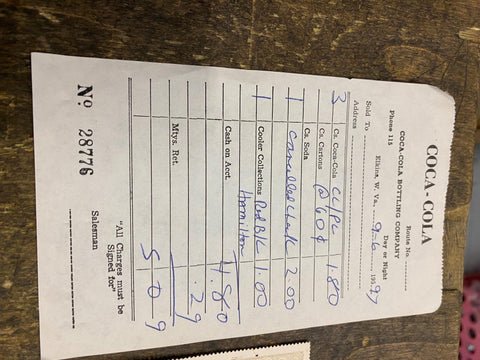 COCA-COLA
Route No.
COCA-COLA BOTTLING COMPANY
Phone 115 Elkins, W. Va., 9-6- 19597
Sold To Day or Night
Address
3 Cs. Coca-Cola CL/PL 1.80
Cs. Cartons @ 60¢
Cs. Soda
1 Cancelled Check 2.00
1 Cooler Collections Pd Blk 1.00
Hamilton
Cash on Acct. 4.80
.29
Mtys. Ret. 5 09
"All Charges must be Signed for"
Salesman
No 28776